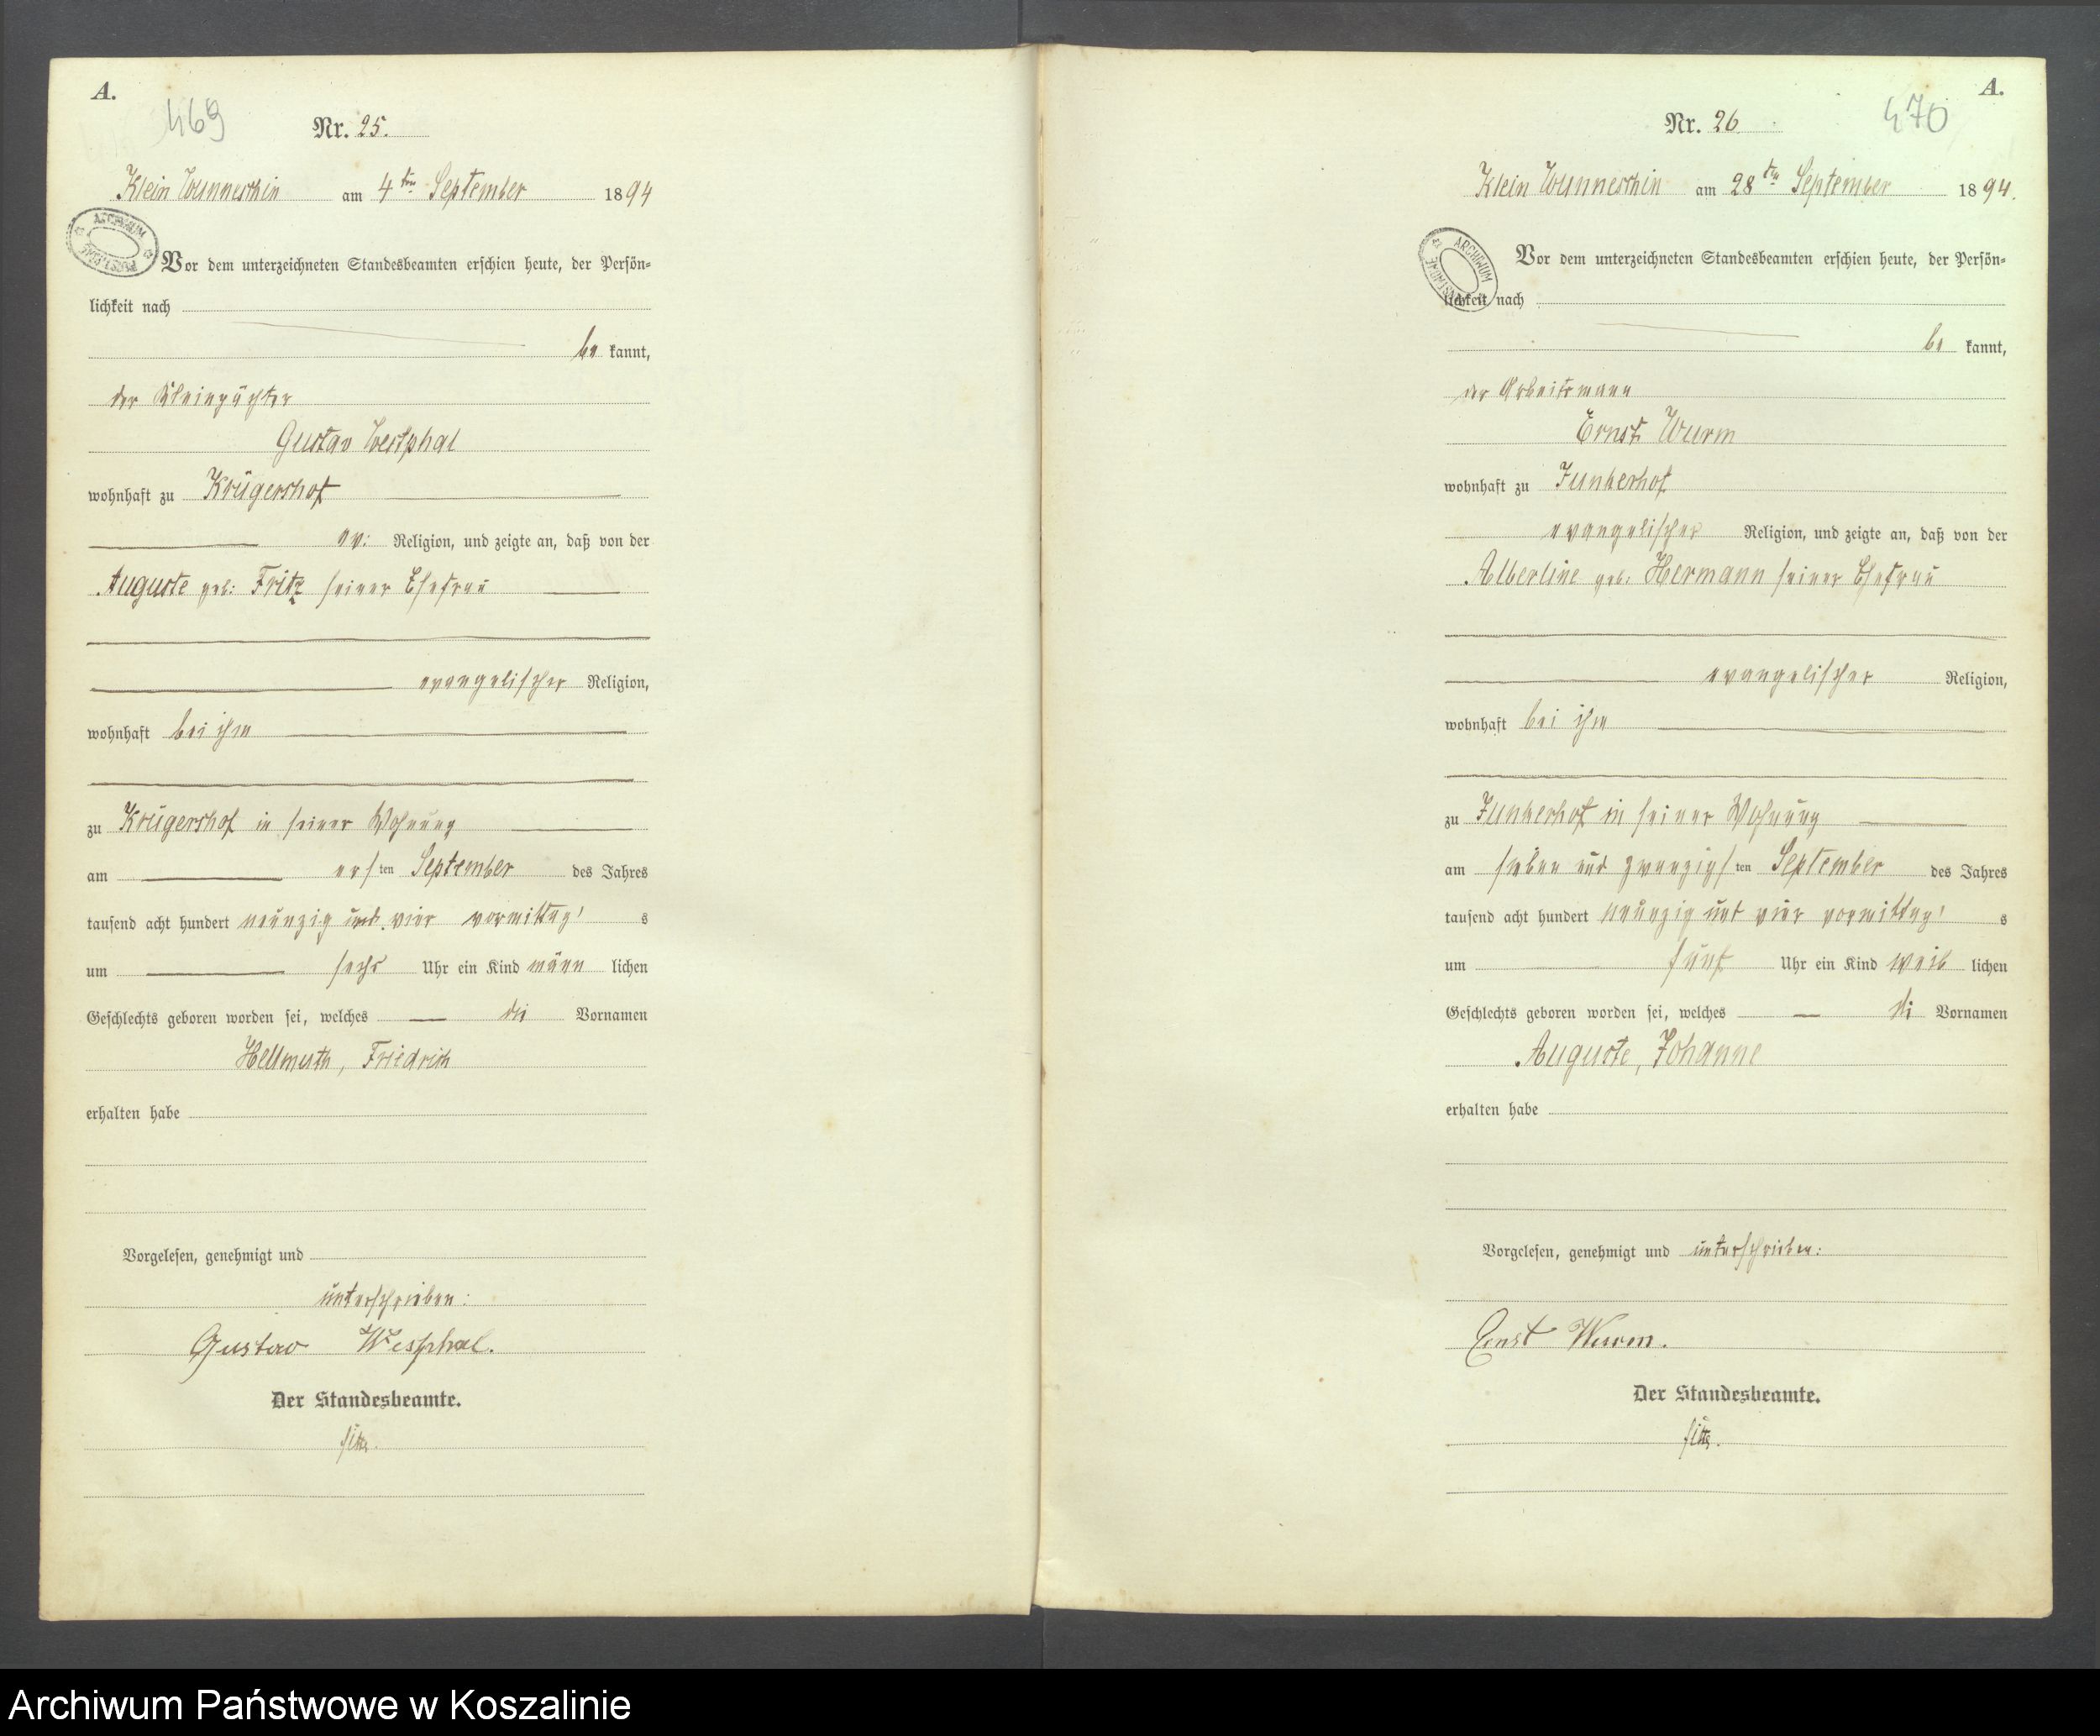 A.
469
Nr. 25.
Klein Wunneschin am 4ten September 1894
ARCHIWUM
Vor dem unterzeichneten Standesbeamten erschien heute, der Persön=
lichkeit nach
be kannt,
der Kleinpächter
Gustav Westphal
wohnhaft zu Krügershof
ev: Religion, und zeigte an, daß von der
Auguste geb: Fritz seiner Ehefrau
evangelischer Religion,
wohnhaft bei ihm
zu Krügershof in seiner Wohnung
am ersten September des Jahres
tausend acht hundert neunzig und vier vormittags
um sechs Uhr ein Kind männlichen
Geschlechts geboren worden sei, welches die Vornamen
Hellmuth, Friedrich
erhalten habe
Vorgelesen, genehmigt und
unterschrieben:
Gustav Westphal.
Der Standesbeamte.
A.
470
Nr. 26
Klein Wunneschin am 28ten September 1894.
ARCHIWUM
Vor dem unterzeichneten Standesbeamten erschien heute, der Persön=
lichkeit nach
be kannt,
der Arbeitsmann
Ernst Wurm
wohnhaft zu Junkerhof
evangelischer Religion, und zeigte an, daß von der
Albertine geb: Hermann seiner Ehefrau
evangelischer Religion,
wohnhaft bei ihm
zu Junkerhof in seiner Wohnung
am sieben und zwanzigsten September des Jahres
tausend acht hundert neunzig und vier vormittags
um fünf Uhr ein Kind weiblichen
Geschlechts geboren worden sei, welches die Vornamen
Auguste, Johanne
erhalten habe
Vorgelesen, genehmigt und unterschrieben:
Ernst Wurm.
Der Standesbeamte.
Archiwum Państwowe w Koszalinie